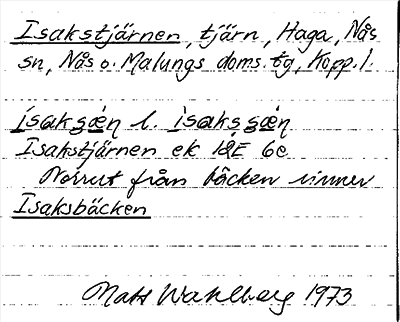 Isakstjärnen, tjärn, Haga, Nås
sn, Nås o. Malungs doms. tg, Kopp. l.
ísakʂǽn̥ l. ìsakʂʂǽn̥
Isakstjärnen ek 12E 6c
Norrut från bäcken rinner
Isaksbäcken
Mats Wahlberg 1973